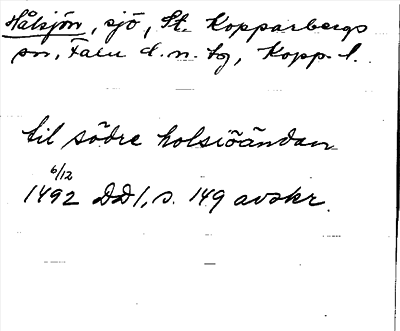 Hålsjön, sjö, St. Kopparbergs
sn, Falu d.n. tg, Kopp. l.
til södre holsiöändan
6/12
1492 DD1, s. 149 avskr.